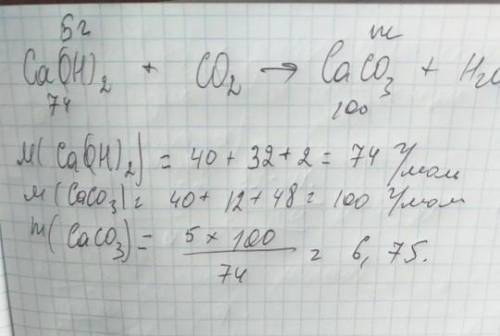 5г m
Ca(OH)₂ + CO₂ → CaCO₃ + H₂O
74 100
M(Ca(OH)₂) = 40 + 32 + 2 = 74 г/моль
M(CaCO₃) = 40 + 12 + 48 = 100 г/моль
m(CaCO₃) = 5 × 100 / 74 = 6,75.